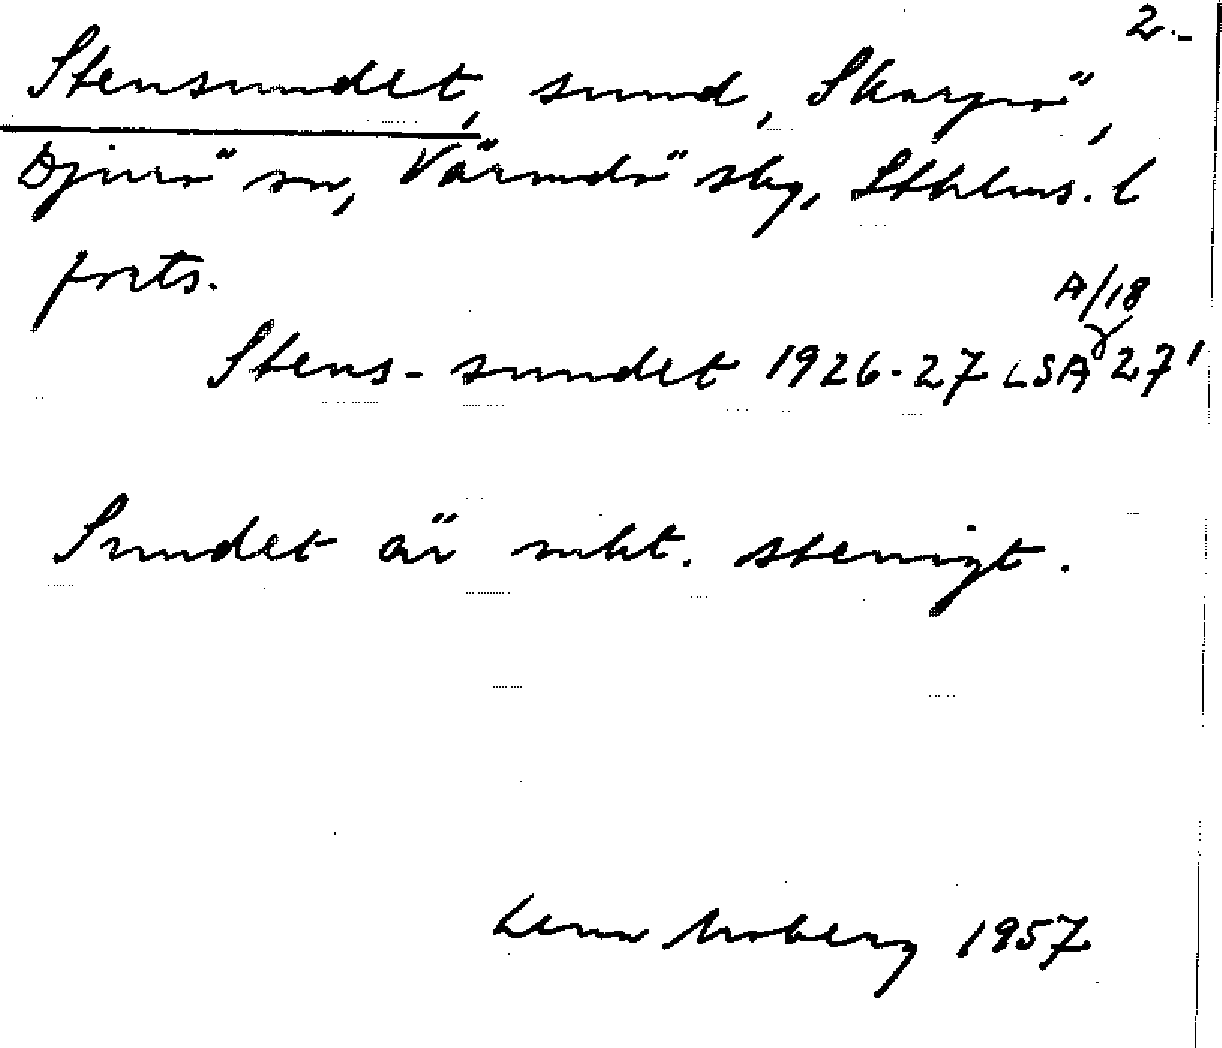 2.-
Stensundet, sund, Skarpö,
Djurö sn, Värmdö skg, Sthlms. l
forts.
A/18
Stens-sundet 1926-27 LSA 27'
Sundet är mkt. stenigt.
Lena Moberg 1957